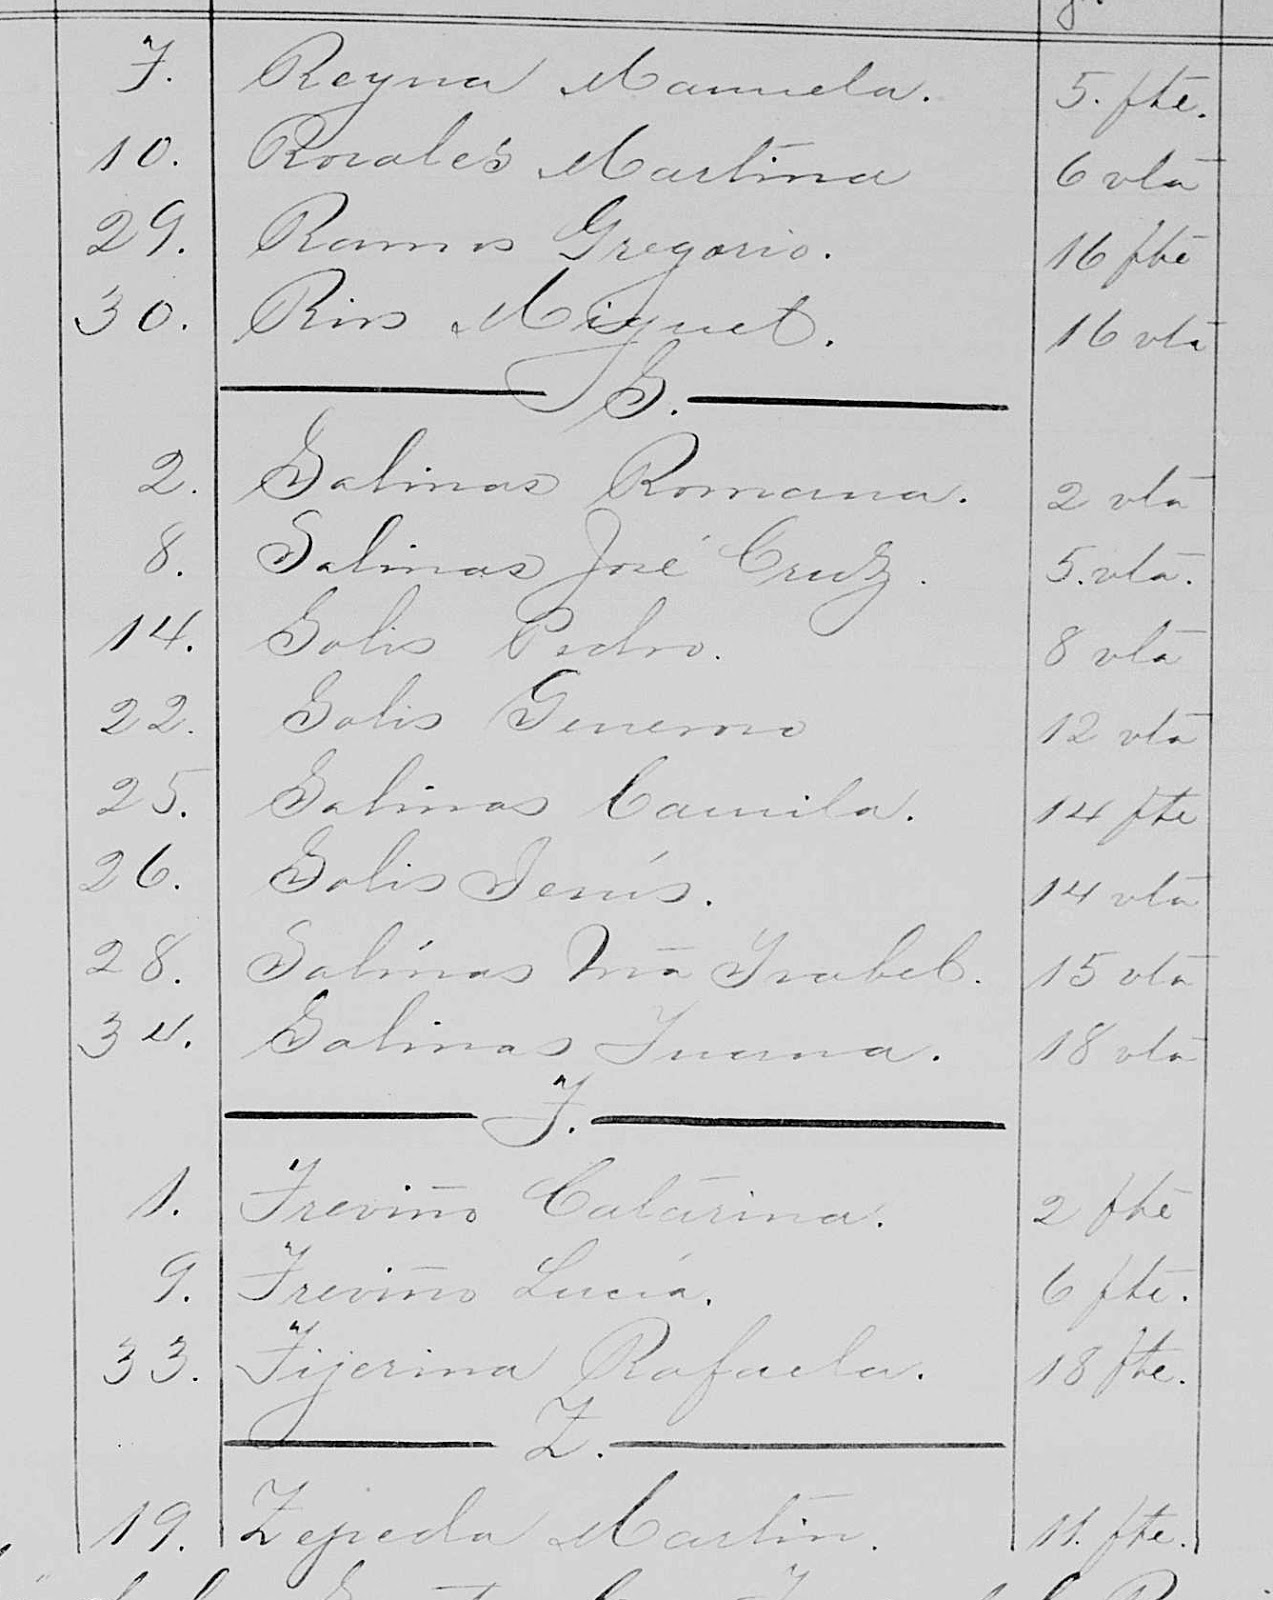 7. Reyna Manuela. 5. fte.
10. Rosales Martina 6 vta
29. Ramos Gregorio. 16 fte
30. Rios Miguel. 16 vta
S.
2. Salinas Romana. 2 vta
8. Salinas José Cruz. 5. vta.
14. Solis Pedro. 8 vta
22. Solis Generoso 12 vta
25. Salinas Camila. 14 fte
26. Solis Jesús. 14 vta
28. Salinas Ma Isabel. 15 vta
34. Salinas Juana. 18 vta
T.
1. Treviño Catarina. 2 fte
9. Treviño Lucía. 6 fte.
33. Tijerina Rafaela. 18 fte.
Z.
19. Zepeda Martin. 11. fte.